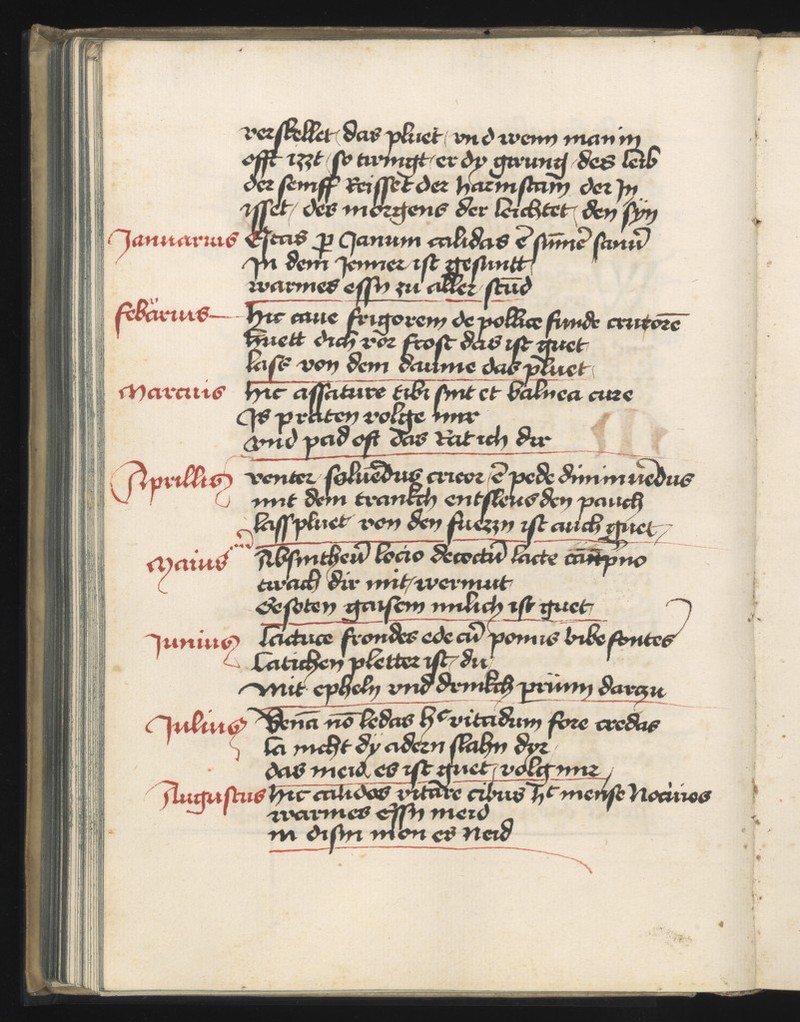 verstellet das pluet vnd wenn man in
offt izzt so twingt er dy girung des leib
der semff Reisset der harmstain der In
isset des morgens der leichtet den syn
Januarius Escas p Janum calidas ē sūmē sanū
In dem Jenner ist gesuntt
warmes essn zu aller stūd
febärius hic caue frigorem de pollice funde cruorē
huett dich vor frost das ist guet
lass von dem daume das pluet
Marcius hic assature tibi sint et balnea cure
Is praten volge mir
vnd pad oft das Rat ich dir
Aprillis venter soluēdus cruor ē pede diminuēdus
mit dem tranckh entsleus den pauch
lass pluet von den fuezzn ist auch guet
Maius Absintheū locio decoctū lacte
twach dir mit wermut
Gesoten gaisem milich ist guet
Junius lactuce frondes ede cū pomis bibe fontes
Latichen pletter ist du
Mit epheln vnd drinckh prünn darczu
Julius Venā nō ledas hᶜ vitadum fore credas
la nicht dy adern slahn dyr
das meid es ist guet volg mir
Augustus hic calidos vitare cibus hᶜ mense Nociuos
warmes essn meid
in disin mon es Neid